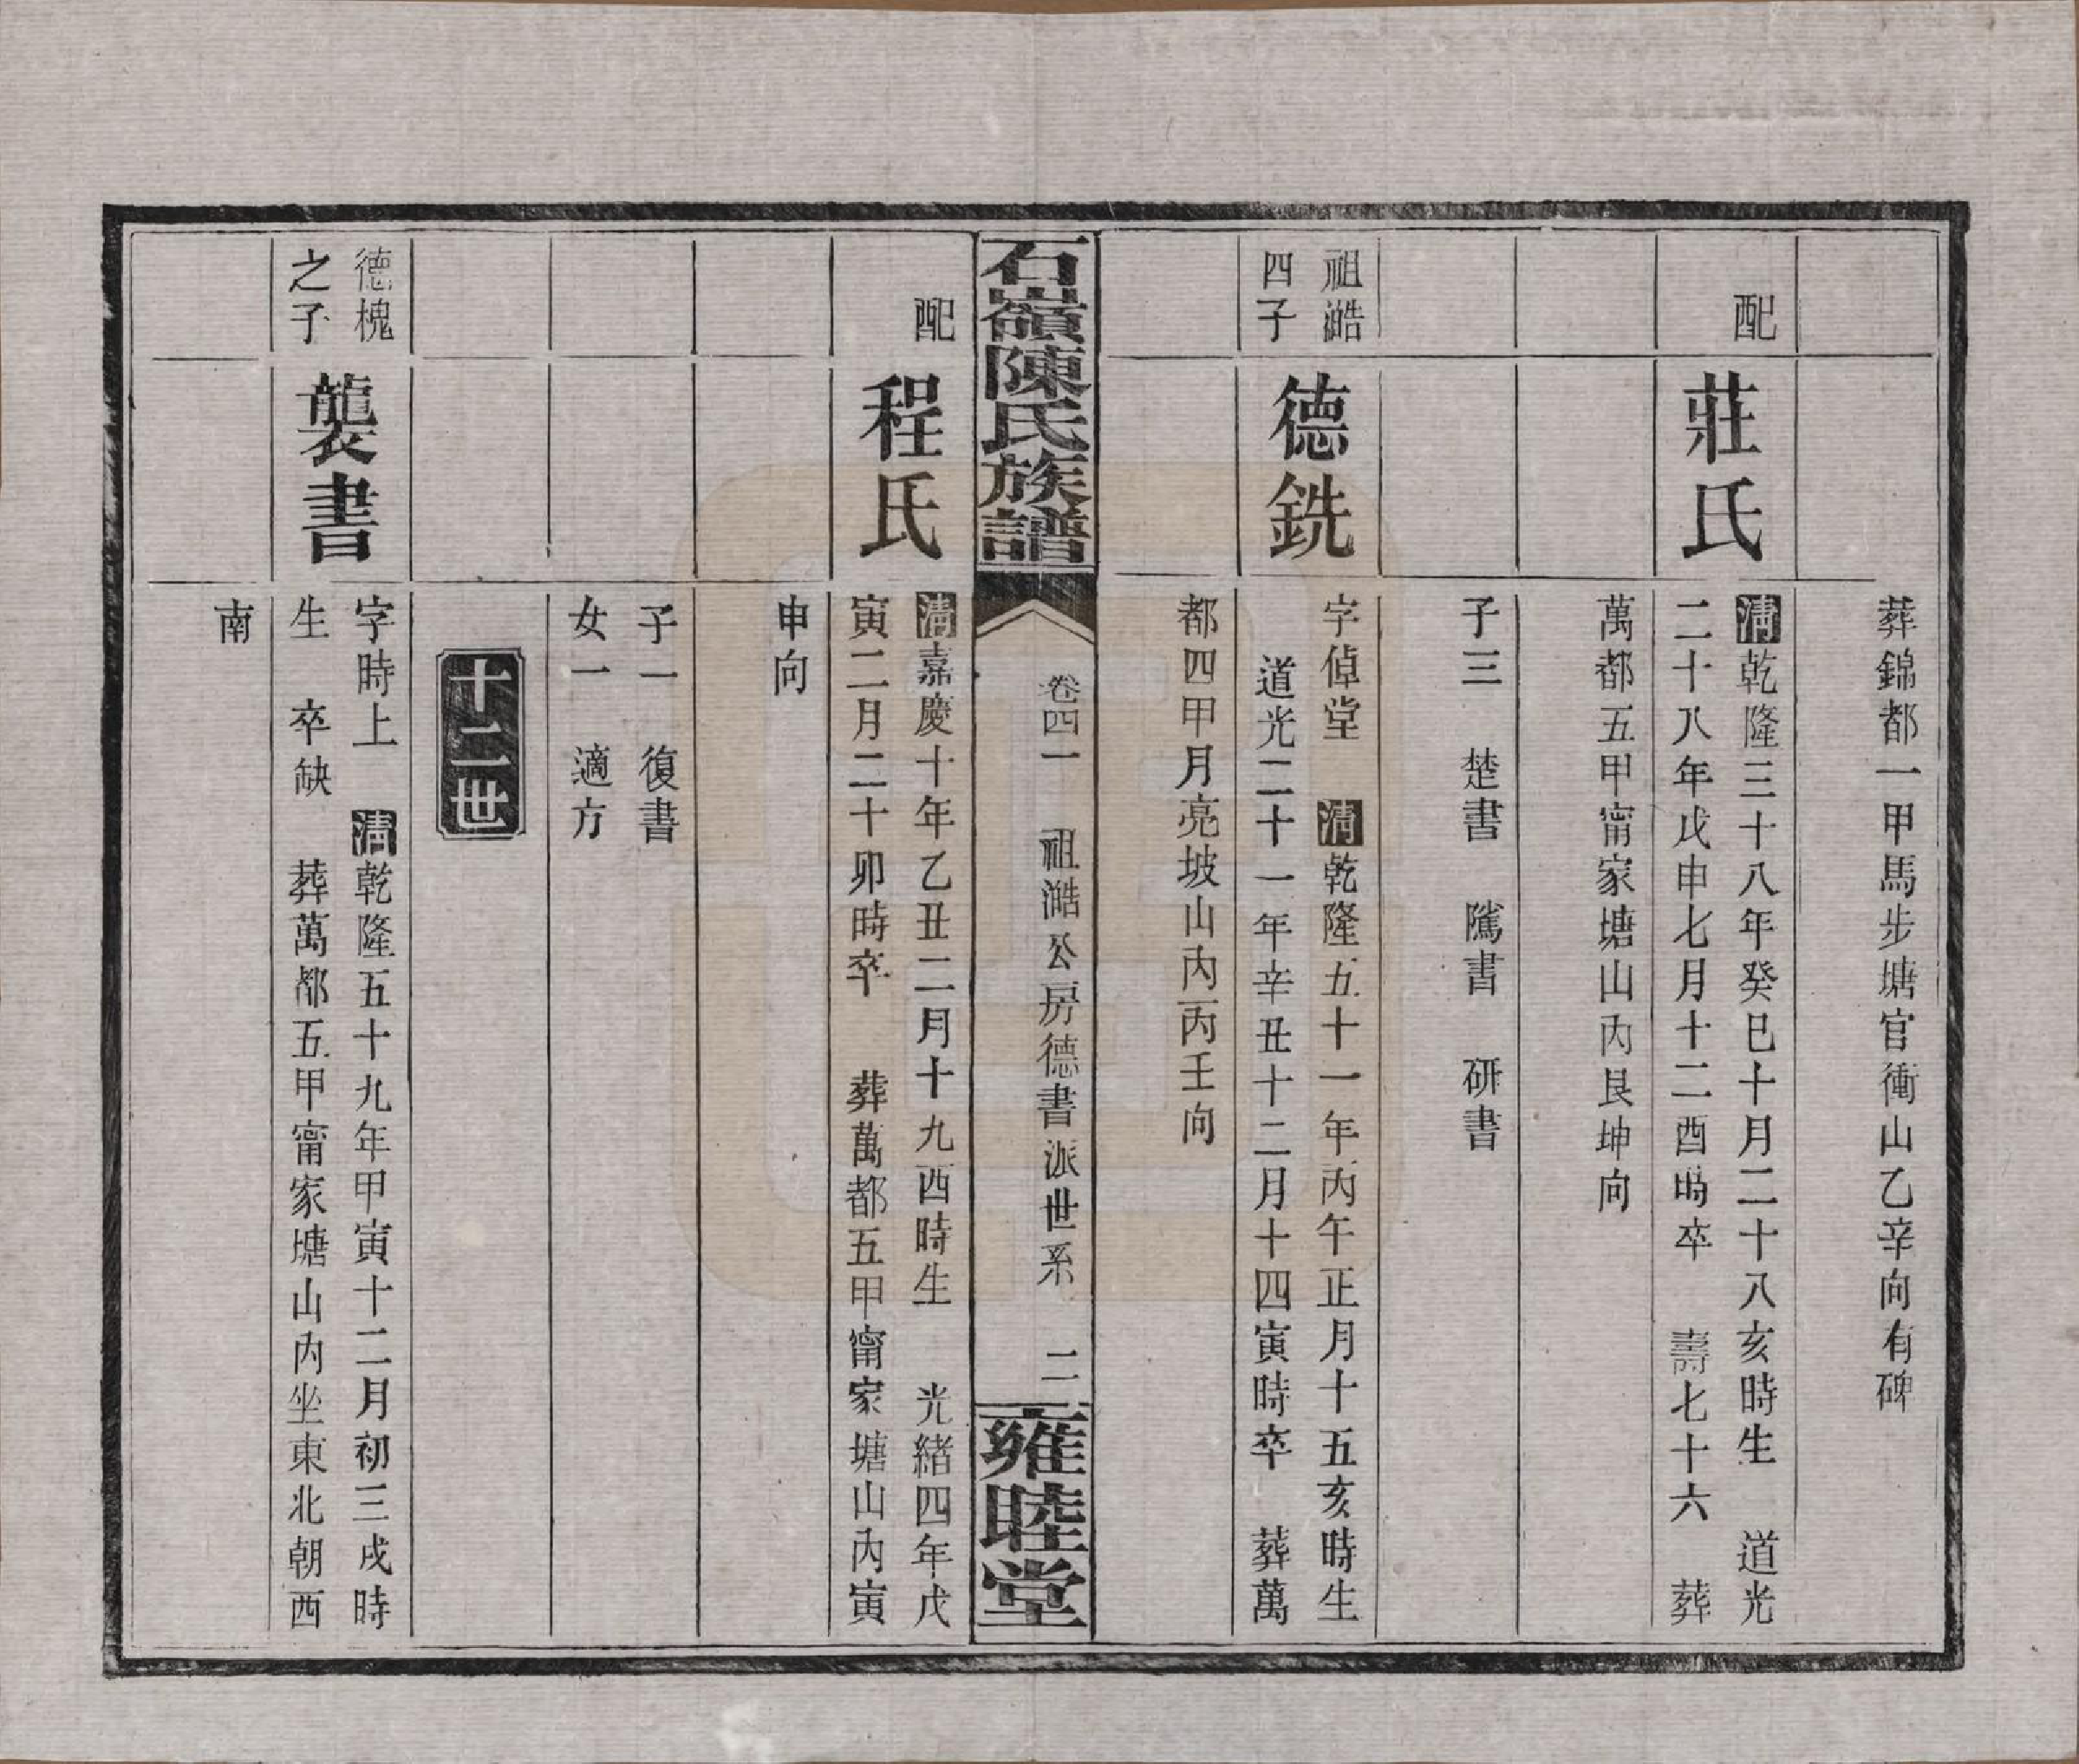 葬錦都一甲馬步塘官衝山乙辛向有碑
配
莊氏
清乾隆三十八年癸巳十月二十八亥時生 道光
二十八年戊申七月十二酉時卒 壽七十六 葬
萬都五甲甯家塘山內艮坤向
子三 楚書 隲書 研書
祖澔
四子
德銑
字倬堂 清乾隆五十一年丙午正月十五亥時生
道光二十一年辛丑十二月十四寅時卒 葬萬
都四甲月亮坡山內丙壬向
石嶺陳氏族譜
卷四一 祖澔公房德書派世系 二
雍睦堂
配
程氏
清嘉慶十年乙丑二月十九酉時生 光緒四年戊
寅二月二十卯時卒 葬萬都五甲甯家塘山內寅
申向
子一 復書
女一 適方
十二世
德槐
之子
襲書
字時上 清乾隆五十九年甲寅十二月初三戌時
生 卒缺 葬萬都五甲甯家塘山內坐東北朝西
南